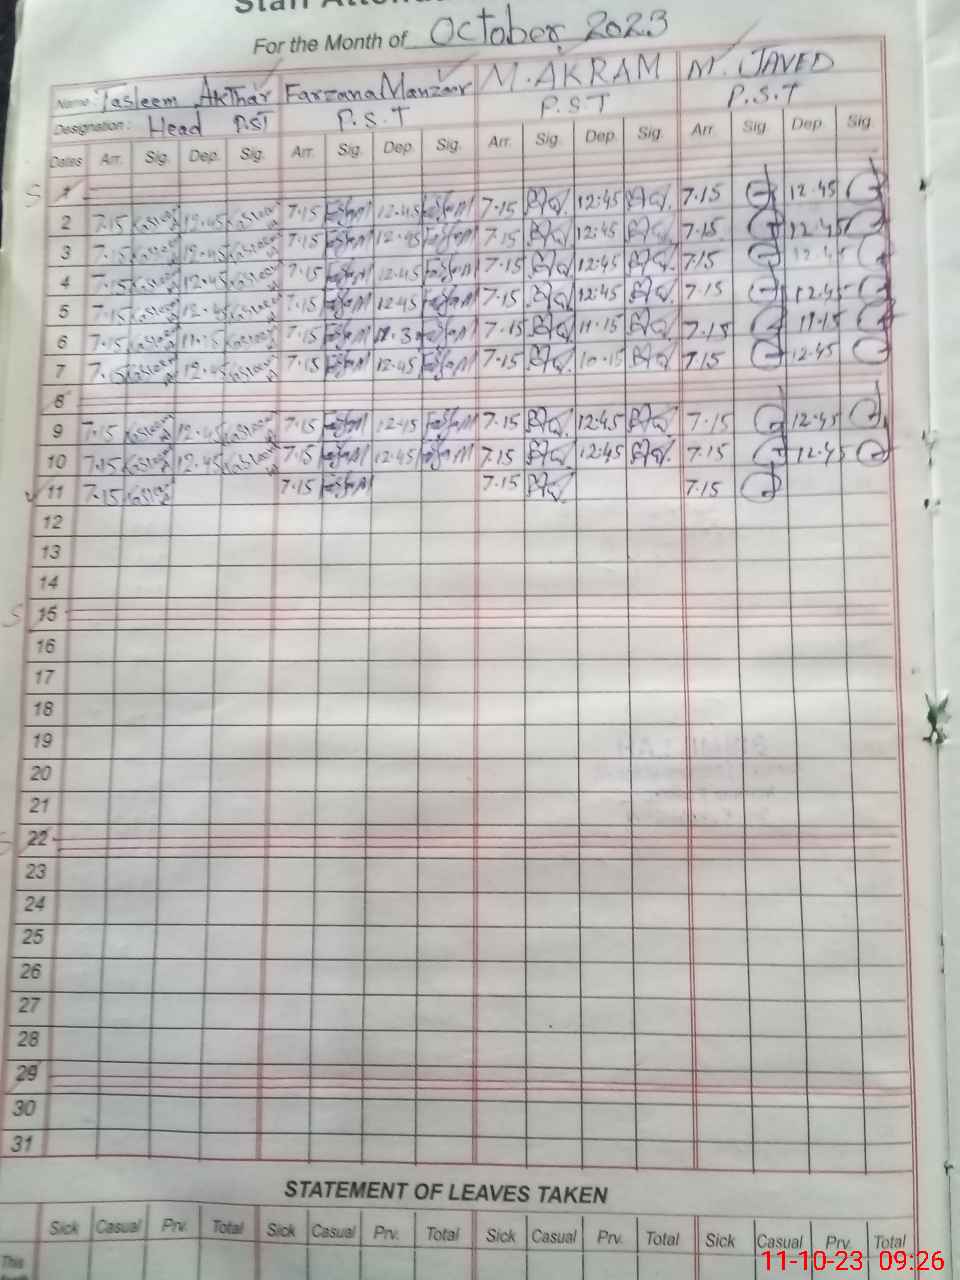 Staff
For the Month of October 2023
Name: Tasleem AKThar Farzana Manzoor M. AKRAM M. JAVED
Designation: Head P.ST P.S.T P.S.T P.S.T
Dates Arr. Sig. Dep. Sig. Arr. Sig. Dep. Sig. Arr. Sig. Dep. Sig. Arr. Sig. Dep. Sig.
S 1
2 7.15 12.45 7.15 12.45 7.15 12:45 7.15 12.45
3 7.15 12.45 7.15 12.45 7.15 12:45 7.15 12.45
4 7.15 12.45 7.15 12.45 7.15 12:45 7.15 12.45
5 7.15 12.45 7.15 12.45 7.15 12:45 7.15 12.45
6 7.15 11.15 7.15 7.15 11.15 7.15 11.15
7 7.15 12.45 7.15 12.45 7.15 10.15 7.15 12.45
8
9 7.15 12.45 7.15 12.45 7.15 12:45 7.15 12.45
10 7.15 12.45 7.15 12.45 7.15 12:45 7.15 12.45
11 7.15 7.15 7.15 7.15
12
13
14
S 15
16
17
18
19
20
21
S 22
23
24
25
26
27
28
29
30
31
STATEMENT OF LEAVES TAKEN
Sick Casual Prv. Total Sick Casual Prv. Total Sick Casual Prv. Total Sick Casual Prv. Total
This
11-10-23 09:26